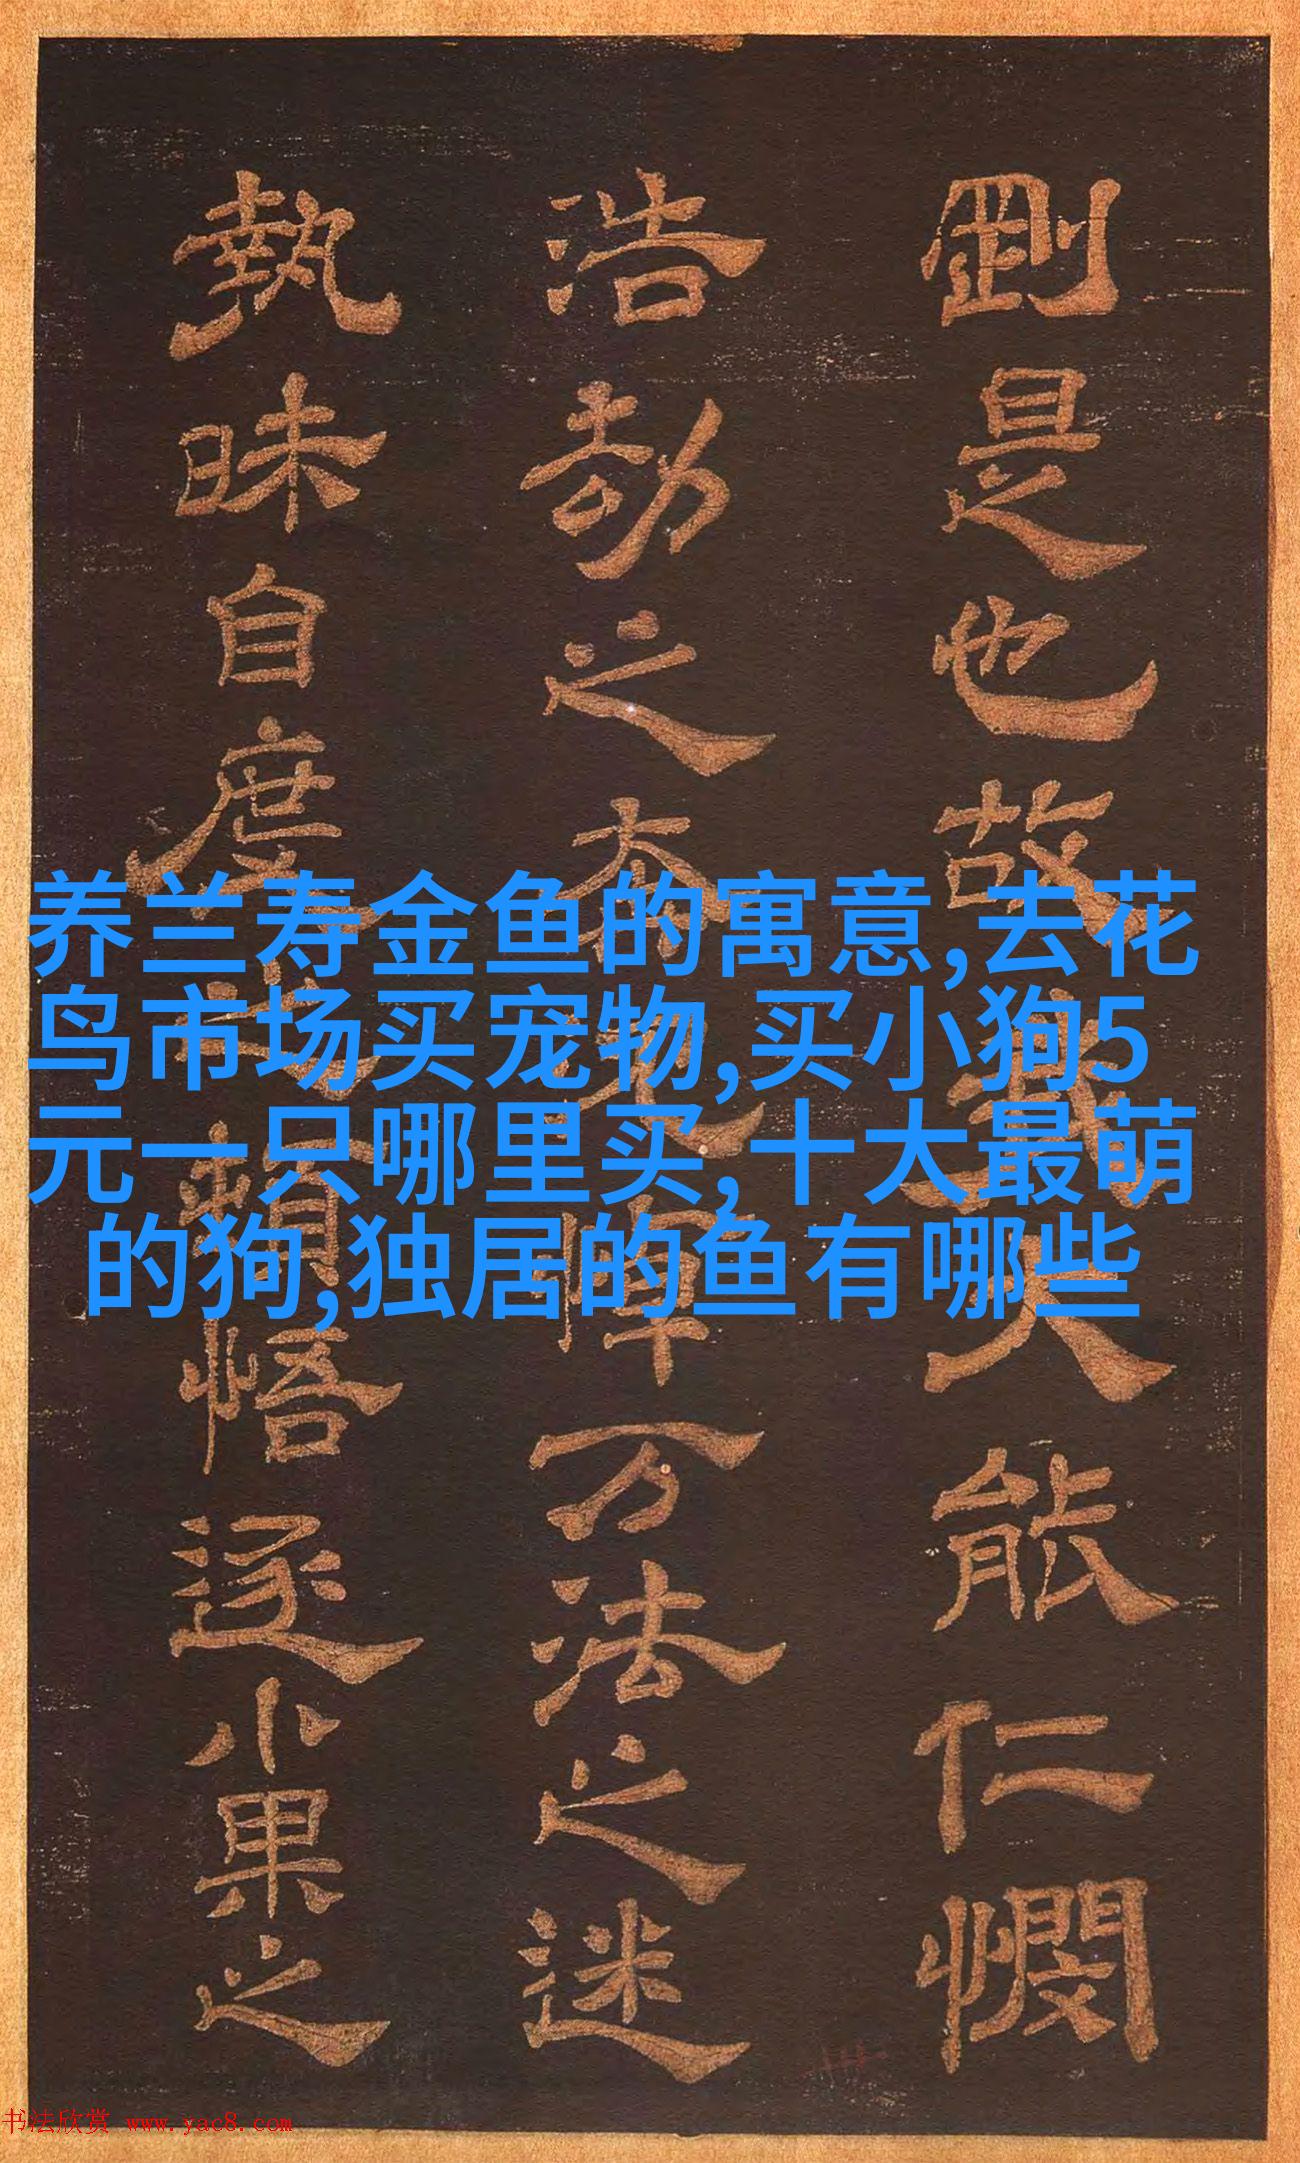 剛是也故我大能仁憫
浩劫之
萬法之迷
執昧自度
頓悟逐小果之
养兰寿金鱼的寓意,去花
鸟市场买宠物,买小狗5
元一只哪里买,十大最萌
的狗,独居的鱼有哪些
书法欣赏 www.yac8.com